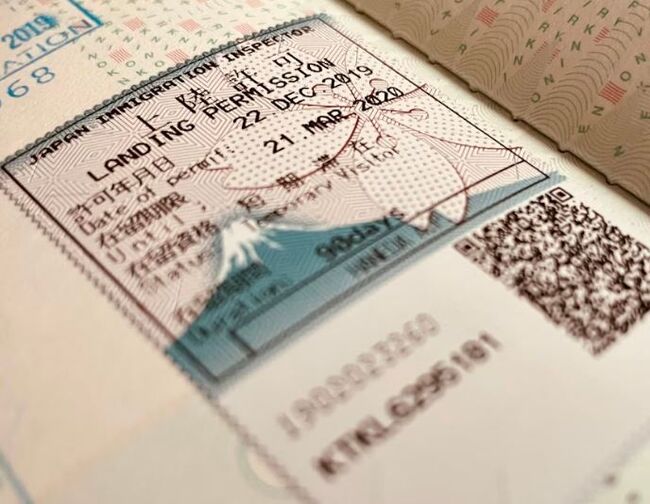 2019
ATION
068
JAPAN IMMIGRATION INSPECTOR
上陸許可
LANDING PERMISSION
許可年月日
Date of permit: 22 DEC 2019
在留期限
Until: 21 MAR 2020
在留資格 短期滞在
Status: Temporary Visitor
在留期間 90days
Duration:
HANEDA